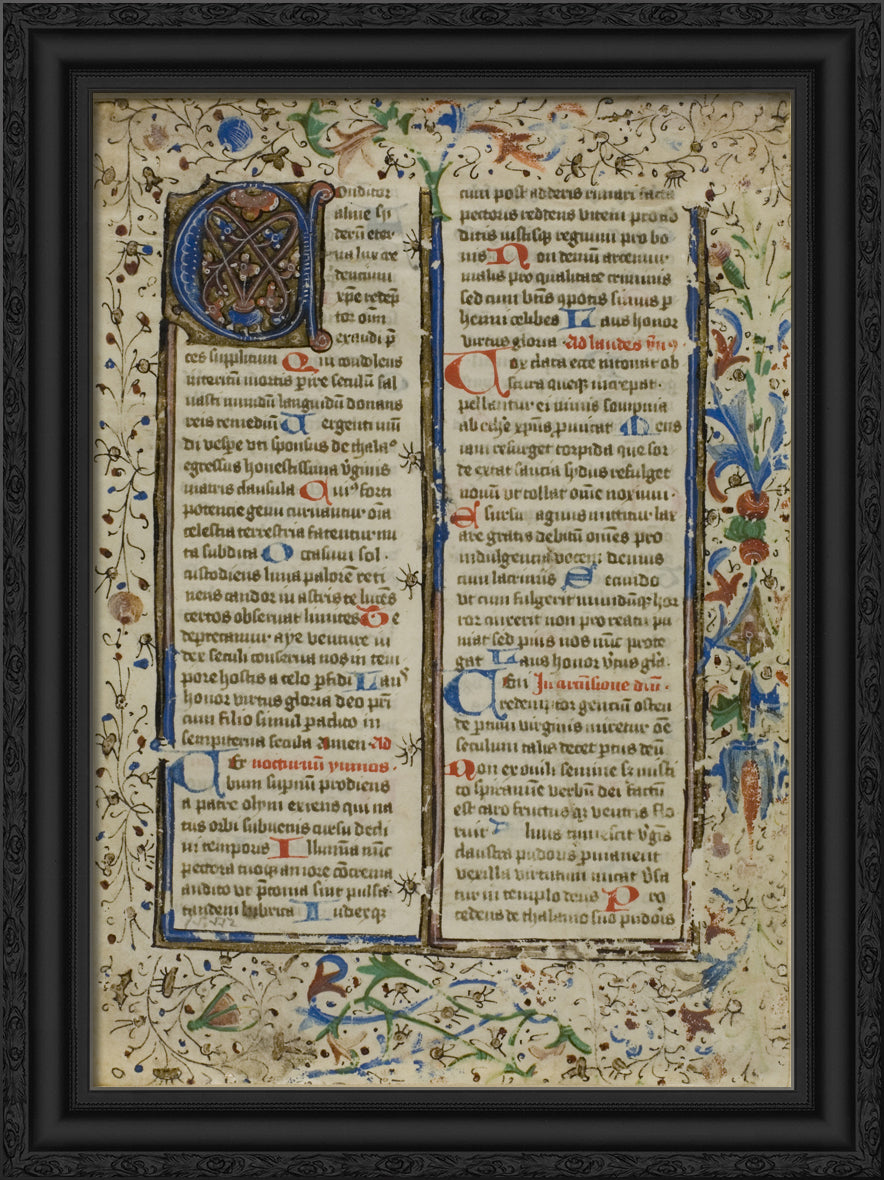 Conditor
alme sy
derū eter
na lux cre
dencium
xp̄e redēp
tor om̄
exaudi p̄
ces suplicum Qui condolens
interitū mortis p̄ire seculū sal
uasti mundū languidū donans
reis remediū Uergenti mū
di vesp̄e vti sponsus de thalaº
egressus honestissima v̄ginis
matris clausula Cuiꝰ forti
potencie genu curuantur oīa
celestia terrestria fatentur nu
tu subdita Occasum sol
custodiens luna palorē reti
nens candor in astris relucēs
certos obseruat limites Te
deprecamur aye venture iu
dex seculi conserua nos in tem
pore hostis a telo p̄fidi Lausͬ
honor virtus gloria deo pr̄i
cum filio simul paclito in
sempiterna secula Amen Ad
Uer nocturnū ymnos
bum sup̄nū prodiens
a patre olym exiens qui na
tus orbi subuenis cursu decli
ui temporis Illumina nūc
pectora tuoqꝫ amore cōcrema
audito vt p̄conia sint pulsa
tandem lubrica Iudexqꝫ
cum post adderis rimari facta
pectoris reddens vicem pro abº
ditis iustisqꝫ regnum pro bo
nis Non demū artemur
malis pro qualitate criminis
sed cum btīs 9potis simus p
hemni celibes Laus honor
virtus gloria Ad laudes ym9
Uox clara ecce intonat ob
scura queqꝫ increpat
pellantur ei minus sompnia
ab ethe xp̄us p̄micat Mens
iam resurget torpida que sor
de extat saucia sydus refulget
nouū vt tollat om̄e noxium
E sursū agnus mittitur lax
are gratis debitū om̄es pro
indulgencia vocem demus
cum lacrimis Secundo
vt cum fulgerit mundūqꝫ hor
ror cinxerit non pro reatu pu
niat sed pius nos nūc prote
gat Laus honor v̄tus gl̄a
Ueni In aduensione dm̄
redemptor gencium osten
de p̄tum virginis miretur oē
seculum talis decet p̄tus deū
Non ex virili semine sꝫ misti
co spiramie verbū dei factū
est caro fructusqꝫ ventris flo
ruit Aluus tumescit v̄gīs
claustra pudoris p̄manent
vexilla virtutum micat v̄sa
tur in templo deus Pro
cedens de thalamo suo pudoris